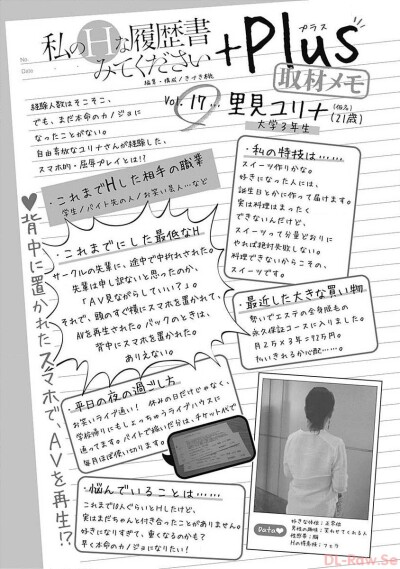 私のHな履歴書
みてください
+Plus
プラス
No.
Date
取材メモ
Vol. 17…
里見ユリナ
(仮名)
(21歳)
大学3年生
経験人数はそこそこ、
でも、まだ本命のカノジョに
なったことがない。
自由奔放なユリナさんが経験した、
スマホ的・屈辱プレイとは!?
・これまでHした相手の職業
学生/バイト先の人/お笑い芸人…など
・これまでにした最低なH
サークルの先輩に、途中で中折れされた。
先輩は申し訳ないと思ったのか、
「AV見ながらしていい?」。
それで、頭のすぐ横にスマホを置かれて、
AVを再生された。バックのときは、
背中にスマホを置かれた。
ありえない。
♥背中に置かれたスマホで、AVを再生!?
・私の特技は……
スイーツ作りかな。
好きになった人には、
誕生日とかに作って届けます。
実は料理はまったく
できないんだけど、
スイーツって分量どおりに
やれば絶対失敗しない。
料理できないからこその、
スイーツです。
・最近した大きな買い物
勢いでエステの全身脱毛の
永久保証コースに入りました。
月2万×3年=72万円。
払いきれるか心配……。
・平日の夜の過ごし方
お笑いライブ通い! 休みの日だけじゃなく、
学校帰りにもしょっちゅうライブハウスに
通ってます。バイトで稼いだ分は、チケット代で
毎月ほぼ使い切ります。
・悩んでいることは……
これまで18人ぐらいとHしたけど、
実はまだちゃんと付き合ったことがありません。
好きになりすぎて、重くなるのかも?
早く本命のカノジョになりたい!
Data♥
好きな体位:正常位
男性の趣味:笑わせてくれる人
性感帯:胸
Hの得意技:フェラ
DL-Raw.Se